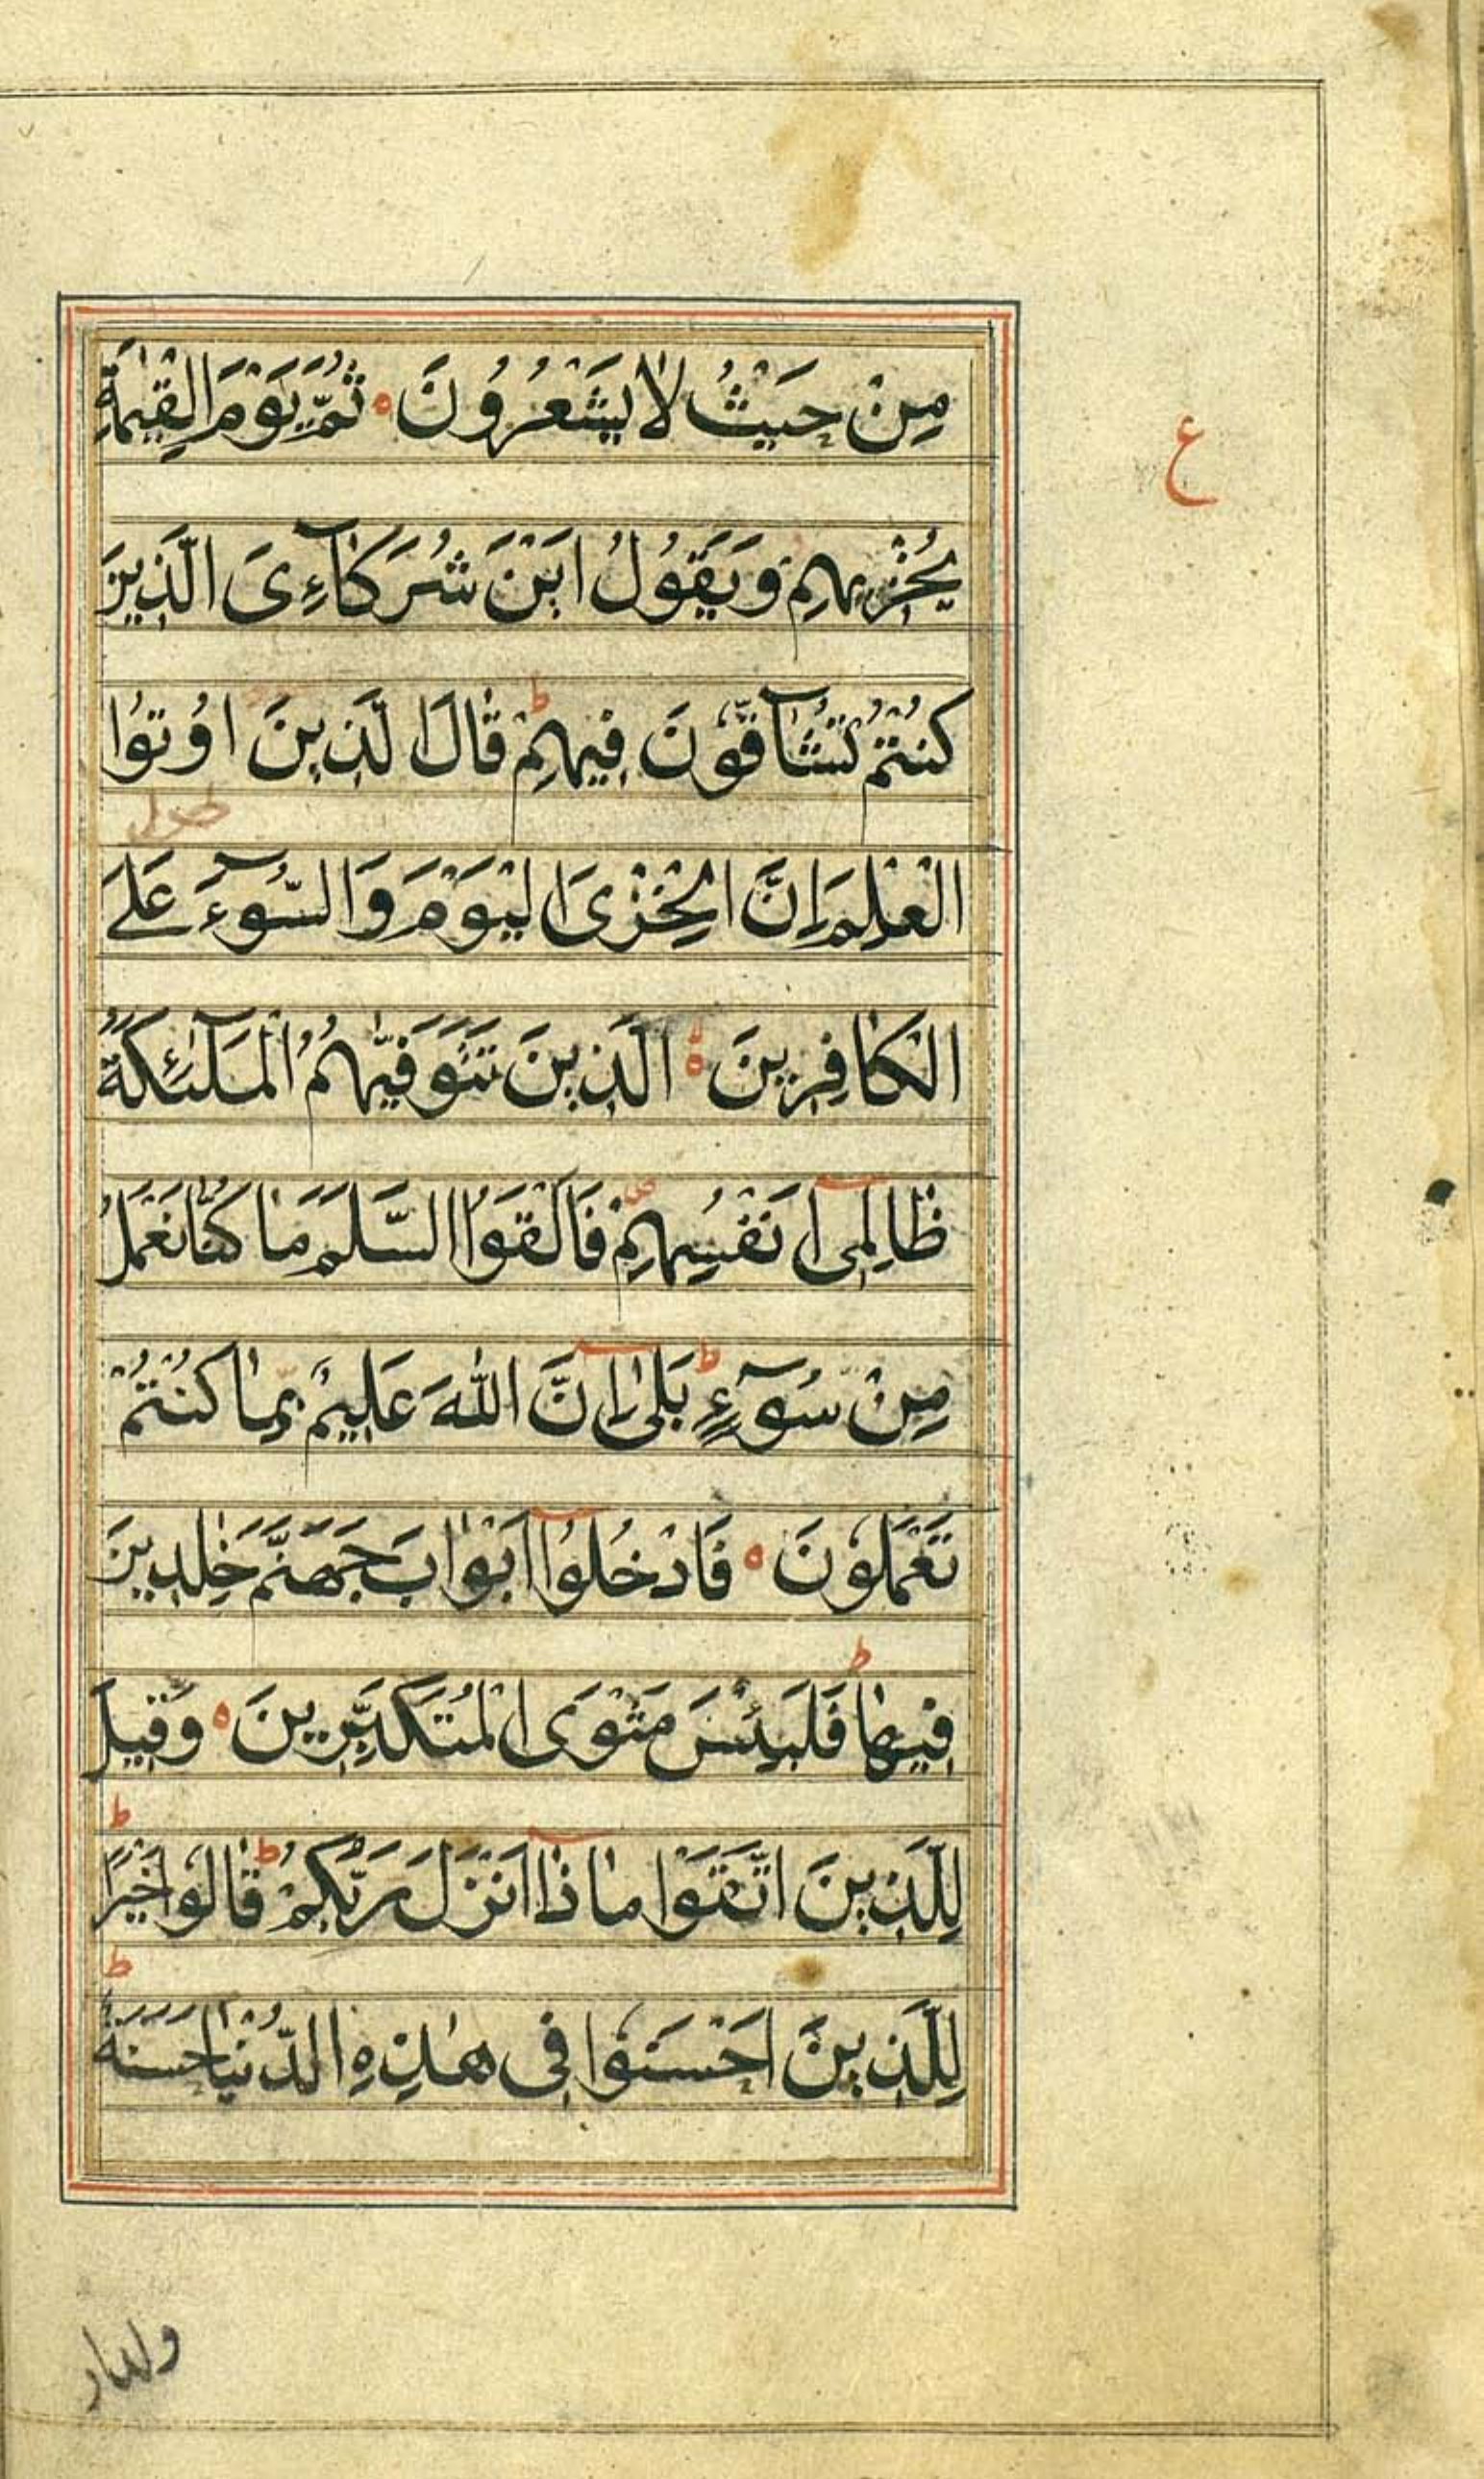 مِنْ حَيْثُ لَا يَشْعُرُونَ ه ثُمَّ يَوْمَ الْقِيٰمَةِ
ع
يُخْزِيهِمْ وَيَقُولُ اَيْنَ شُرَكَآءِىَ الَّذِينَ
كُنْتُمْ تُشَآقُّوْنَ فِيهِمْ ط قَالَ الَّذِينَ اُوتُوا
الْعِلْمَ اِنَّ الْخِزْىَ الْيَوْمَ وَالسُّوٓءَ عَلَى
الْكَافِرِينَ ه الَّذِينَ تَتَوَفّٰيهُمُ الْمَلٰٓئِكَةُ
ظَالِمِىٓ اَنْفُسِهِمْ ص فَاَلْقَوُا السَّلَمَ مَا كُنَّا نَعْمَلُ
مِنْ سُوٓءٍ ط بَلٰىٓ اِنَّ اللّٰهَ عَلِيمٌ بِمَا كُنْتُمْ
تَعْمَلُونَ ه فَادْخُلُوٓا اَبْوَابَ جَهَنَّمَ خٰلِدِينَ
فِيهَا ط فَلَبِئْسَ مَثْوَى الْمُتَكَبِّرِينَ ه وَقِيلَ
لِلَّذِينَ اتَّقَوْا مَاذَآ اَنْزَلَ رَبُّكُمْ ط قَالُوا خَيْرًا ط
لِلَّذِينَ اَحْسَنُوا فِى هٰذِهِ الدُّنْيَا حَسَنَةٌ ط
ولدار